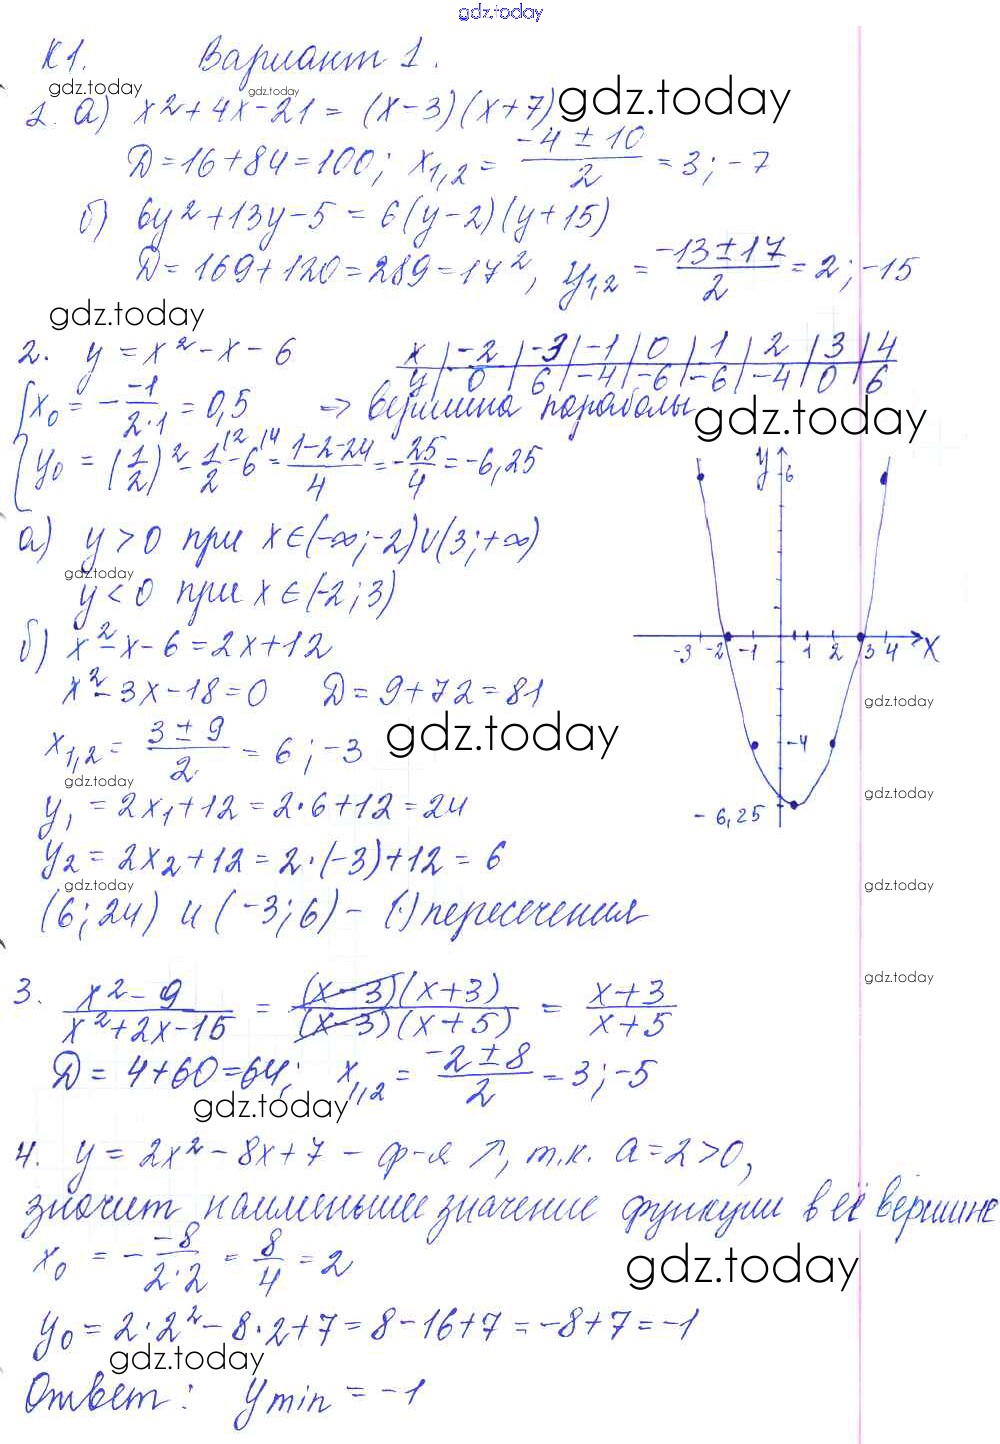 gdz.today
К1. Вариант 1.
gdz.today gdz.today
1. а) x² + 4x - 21 = (x - 3)(x + 7) gdz.today
D = 16 + 84 = 100; x₁,₂ = (-4 ± 10)/2 = 3; -7
б) 6y² + 13y - 5 = 6(y - 2)(y + 15)
D = 169 + 120 = 289 = 17², y₁,₂ = (-13 ± 17)/2 = 2; -15
gdz.today
2. y = x² - x - 6
x | -2 | -3 | -1 | 0 | 1 | 2 | 3 | 4
y | 0 | 6 | -4 | -6 | -6 | -4 | 0 | 6
x₀ = - (-1)/(2·1) = 0,5 => вершина параболы
gdz.today
y₀ = (1/2)² - 1/2 \2 - 6 \4 = (1-2-24)/4 = -25/4 = -6,25
y 6
а) y > 0 при x ∈ (-∞; -2) ∪ (3; +∞)
gdz.today
y < 0 при x ∈ (-2; 3)
б) x² - x - 6 = 2x + 12
-3 -2 -1 1 2 3 4 x
x² - 3x - 18 = 0 D = 9 + 72 = 81
gdz.today
gdz.today
x₁,₂ = (3 ± 9)/2 = 6; -3
-4
gdz.today
gdz.today
y₁ = 2x₁ + 12 = 2·6 + 12 = 24
-6,25
y₂ = 2x₂ + 12 = 2·(-3) + 12 = 6
gdz.today gdz.today
(6; 24) и (-3; 6) - (·) пересечения
gdz.today
3. (x² - 9)/(x² + 2x - 15) = ((x - 3)(x + 3))/((x - 3)(x + 5)) = (x + 3)/(x + 5)
D = 4 + 60 = 64; x₁,₂ = (-2 ± 8)/2 = 3; -5
gdz.today
4. y = 2x² - 8x + 7 - ф-я ↗, т.к. a = 2 > 0,
значит наименьшее значение функции в её вершине
x₀ = - (-8)/(2·2) = 8/4 = 2
gdz.today
y₀ = 2·2² - 8·2 + 7 = 8 - 16 + 7 = -8 + 7 = -1
gdz.today
Ответ: y min = -1